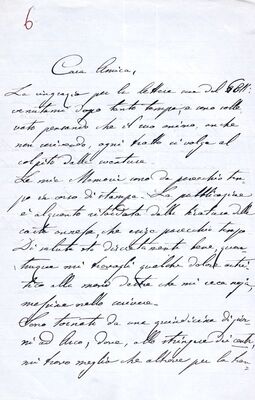 6
Cara Amica,
La ringrazio per la lettera sua del 6 Ott.
venutami dopo tanto tempo, e sono solle
vato pensando che il suo animo, anche
non scrivendo, ogni tratto si volga al
colpito dalle sventure
Le mie Memorie sono da parecchio tem
po in corso di stampa. La pubblicazione
è alquanto ritardata dalla tiratura delle
carte annesse, che esige parecchio tempo
Di salute sto discretamente bene, quan
tunque mi travagli qualche dolore artri
tico alla mano destra che mi reca noja,
massime nello scrivere.
Sono tornato da una quindicina di gior
ni ad Arco, dove, alle stringhe dei conti,
mi trovo meglio che altrove per la tran